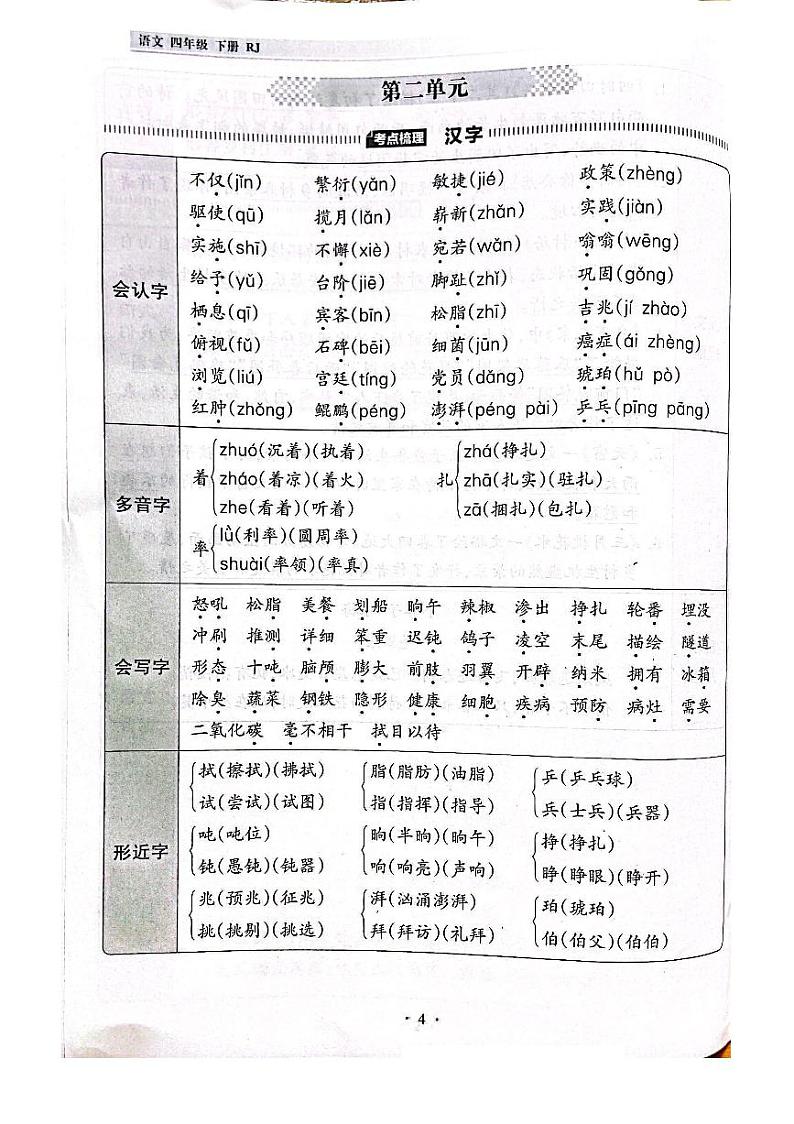 语文 四年级 下册 RJ
第二单元
考点梳理 汉字
会认字
不仅(jǐn) 繁衍(yǎn) 敏捷(jié) 政策(zhèng)
驱使(qū) 揽月(lǎn) 崭新(zhǎn) 实践(jiàn)
实施(shī) 不懈(xiè) 宛若(wǎn) 嗡嗡(wēng)
给予(yǔ) 台阶(jiē) 脚趾(zhǐ) 巩固(gǒng)
栖息(qī) 宾客(bīn) 松脂(zhī) 吉兆(jí zhào)
俯视(fǔ) 石碑(bēi) 细菌(jūn) 癌症(ái zhèng)
浏览(liú) 宫廷(tíng) 党员(dǎng) 琥珀(hǔ pò)
红肿(zhǒng) 鲲鹏(péng) 澎湃(péng pài) 乒乓(pīng pāng)
多音字
着
zhuó(沉着)(执着)
zháo(着凉)(着火)
zhe(看着)(听着)
扎
zhá(挣扎)
zhā(扎实)(驻扎)
zā(捆扎)(包扎)
率
lǜ(利率)(圆周率)
shuài(率领)(率真)
会写字
怒吼 松脂 美餐 划船 晌午 辣椒 渗出 挣扎 轮番 埋没
冲刷 推测 详细 笨重 迟钝 鸽子 凌空 末尾 描绘 隧道
形态 十吨 脑颅 膨大 前肢 羽翼 开辟 纳米 拥有 冰箱
除臭 蔬菜 钢铁 隐形 健康 细胞 疾病 预防 病灶 需要
二氧化碳 毫不相干 拭目以待
形近字
拭(擦拭)(拂拭) 脂(脂肪)(油脂) 乒(乒乓球)
试(尝试)(试图) 指(指挥)(指导) 兵(士兵)(兵器)
吨(吨位) 晌(半晌)(晌午) 挣(挣扎)
钝(愚钝)(钝器) 响(响亮)(声响) 睁(睁眼)(睁开)
兆(预兆)(征兆) 湃(汹涌澎湃) 珀(琥珀)
挑(挑剔)(挑选) 拜(拜访)(礼拜) 伯(伯父)(伯伯)
· 4 ·